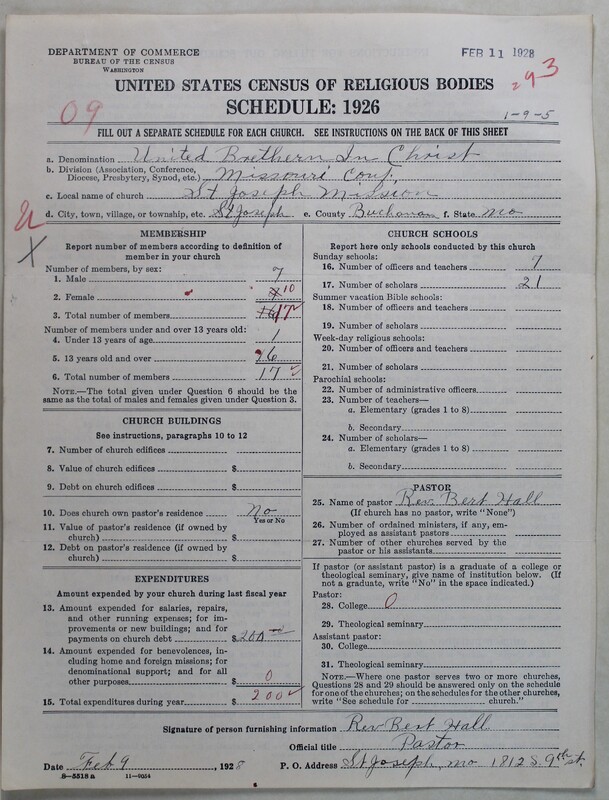 DEPARTMENT OF COMMERCE
BUREAU OF THE CENSUS
WASHINGTON
FEB 11 1928
293
UNITED STATES CENSUS OF RELIGIOUS BODIES
SCHEDULE: 1926
09
1-9-5
FILL OUT A SEPARATE SCHEDULE FOR EACH CHURCH. SEE INSTRUCTIONS ON THE BACK OF THIS SHEET
a. Denomination United Brethern In Christ
b. Division (Association, Conference, Diocese, Presbytery, Synod, etc.) Missouri Conf.
c. Local name of church St Joseph Mission
d. City, town, village, or township, etc. St Joseph e. County Buchanan f. State Mo
X
MEMBERSHIP
Report number of members according to definition of
member in your church
Number of members, by sex:
1. Male 7
2. Female 10
3. Total number of members 17
Number of members under and over 13 years old:
4. Under 13 years of age 1
5. 13 years old and over 16
6. Total number of members 17
NOTE.—The total given under Question 6 should be
same as the total of males and females given under Question 3.
CHURCH BUILDINGS
See instructions, paragraphs 10 to 12
7. Number of church edifices
8. Value of church edifices $
9. Debt on church edifices $
10. Does church own pastor's residence? No
Yes or No
11. Value of pastor's residence (if owned by
church) $
12. Debt on pastor's residence (if owned by
church) $
EXPENDITURES
Amount expended by your church during last fiscal year
13. Amount expended for salaries, repairs,
and other running expenses; for im-
provements or new buildings; and for
payments on church debt $ 200
14. Amount expended for benevolences, in-
cluding home and foreign missions; for
denominational support; and for all
other purposes $ 0
15. Total expenditures during year $ 200
CHURCH SCHOOLS
Report here only schools conducted by this church
Sunday schools:
16. Number of officers and teachers 7
17. Number of scholars 21
Summer vacation Bible schools:
18. Number of officers and teachers
19. Number of scholars
Week-day religious schools:
20. Number of officers and teachers
21. Number of scholars
Parochial schools:
22. Number of administrative officers
23. Number of teachers—
a. Elementary (grades 1 to 8)
b. Secondary
24. Number of scholars—
a. Elementary (grades 1 to 8)
b. Secondary
PASTOR
25. Name of pastor Rev. Bert Hall
(If church has no pastor, write "None")
26. Number of ordained ministers, if any, em-
ployed as assistant pastors
27. Number of other churches served by the
pastor or his assistants
If pastor (or assistant pastor) is a graduate of a college or
theological seminary, give name of institution below. (If
not a graduate, write "No" in the space indicated.)
Pastor:
28. College 0
29. Theological seminary
Assistant pastor:
30. College
31. Theological seminary
NOTE.—Where one pastor serves two or more churches,
Questions 28 and 29 should be answered only on the schedule
for one of the churches; on the schedules for the other churches,
write "See schedule for church."
Signature of person furnishing information Rev Bert Hall
Official title Pastor
Date Feb 9, 1928 P. O. Address St Joseph, Mo 1812 S. 9th st.
8-5518 a 11-9054
6